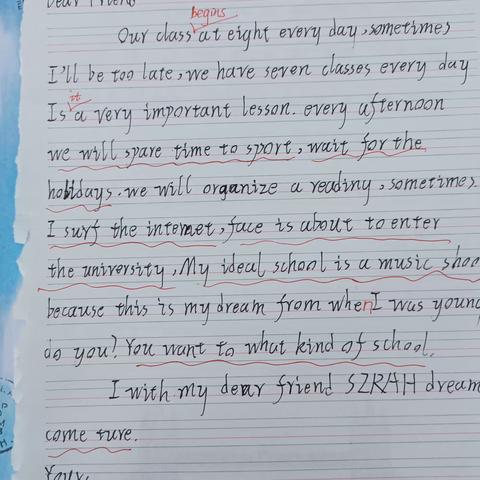 Dear Friend
begins
Our class at eight every day, sometimes
I'll be too late, we have seven classes every day
it
Is a very important lesson. every afternoon
we will spare time to sport, wait for the
holidays. we will organize a reading, sometimes
I surf the internet, face is about to enter
the university, My ideal school is a music shoo
because this is my dream from when I was young
do you? You want to what kind of school.
I with my dear friend SZRAH dream
come ture.
Your,